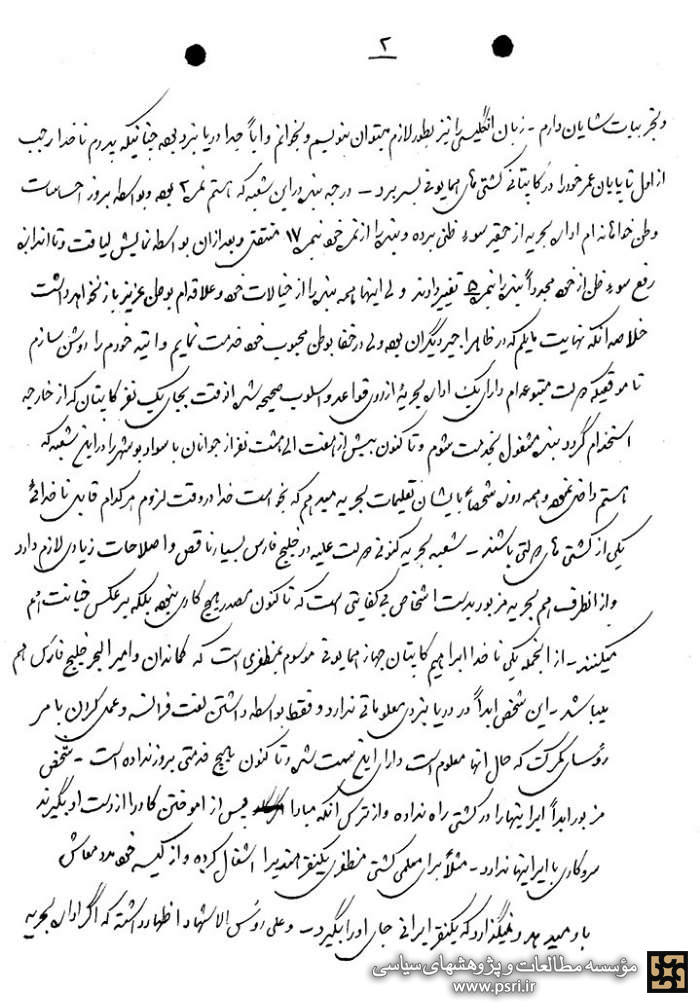 ۲
و تجربیات شایان دارم - زبان انگلیسی را نیز بطور لازم میتوان بنویسم و بخوانم و اباً جداً دریا نبرد بوده چنانیکه پدرم ناخدا رجب
از اول تا پایان عمر خود را در کاپیتانی کشتی‌های همایونی بسر برد - درجه بنده در این شعبه که هستم نمره ۲ بوده و بواسطه بروز احساسات
وطن خواهانه ام اداره بحریه از حقیر سوء ظنی برده و بنده را از نمره خود بنمره ۱۷ منتقل و بعد از آن بواسطه نمایش لیاقت و تا اندازه
رفع سوء ظن از خود مجدداً بنده را بنمره ۵ تغییر دادند ولی اینها همه بنده را از خیالات خود و علاقه‌ام بوطن عزیز باز نخواهد داشت
خلاصه آنکه نهایت مایلم که در ظاهر اجیر دیگران بوده ولی در خفا بوطن محبوب خود خدمت نمایم و آتیه خودم را روشن سازم
تا موقعیکه دولت متبوعه‌ام دارای یک اداره بحریهٔ از روی قواعد و اسلوب صحیحه شد آنوقت بجای یک نفر کاپیتان که از خارجه
استخدام گردد بنده مشغول بخدمت شوم و تا کنون بیش از هفت الی هشت نفر از جوانان با سواد بوشهر را در این شعبه که
هستم داخل نموده و همه روزه شخصاً بایشان تعلیمات بحریه میدهم که بخواست خدا در وقت لزوم هر کدام قابل ناخدائی
یکی از کشتی‌های دولتی باشند - شعبه بحریه کنونی دولت علیه در خلیج فارس بسیار ناقص و اصلاحات زیادی لازم دارد
و از آنطرف هم بحریه مزبور بدست اشخاص بی کفایتی است که تا کنون مصدر هیچ کاری نبوده بلکه بر عکس خیانت هم
میکنند - از آنجمله یکی ناخدا ابراهیم کاپیتان جهاز همایونی موسوم بمظفری است که کماندان و امیر البحر خلیج فارس هم
میباشد - این شخص ابداً در دریا نبردی معلوماتی ندارد و فقط بواسطه داشتن لغت فرانسه و عمل کردن با مر
رؤسای گمرکت که حال آنها معلوم است دارای این سمت شده و تا کنون هیچ خدمتی بروز نداده است - شخص
مزبور ابداً ایرانیها را در کشتی راه نداده و از ترس آنکه مبادا پس از آموختن کار را از دست او بگیرند
سر و کاری با ایرانیها ندارد - مثلاً برای معلمی کشتی مظفری یکنفر هندی را اشغال کرده و از کیسه خود مدد معاش
باو میدهد و نمیگذارد که یکنفر ایرانی جای او را بگیرد - و علی رؤس الاشهاد اظهار داشته که اگر اداره بحریه
مؤسسه مطالعات و پژوهشهای سیاسی
www.psri.ir